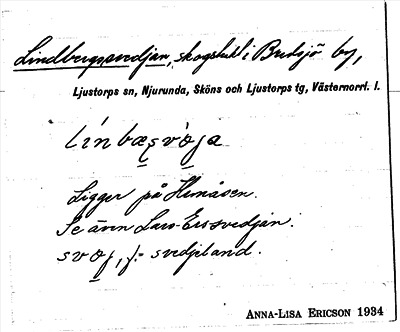 Lindbergssvedjan, skogskukl i Bredsjö by,
Ljustorps sn, Njurunda, Sköns och Ljustorps tg, Västernorrl. l.
línbæṣvò̤ja
Ligger på Hemåsen.
Se även Lars-Erssvedjan.
svo̤j, f.= svedjeland.
ANNA-LISA ERICSON 1934